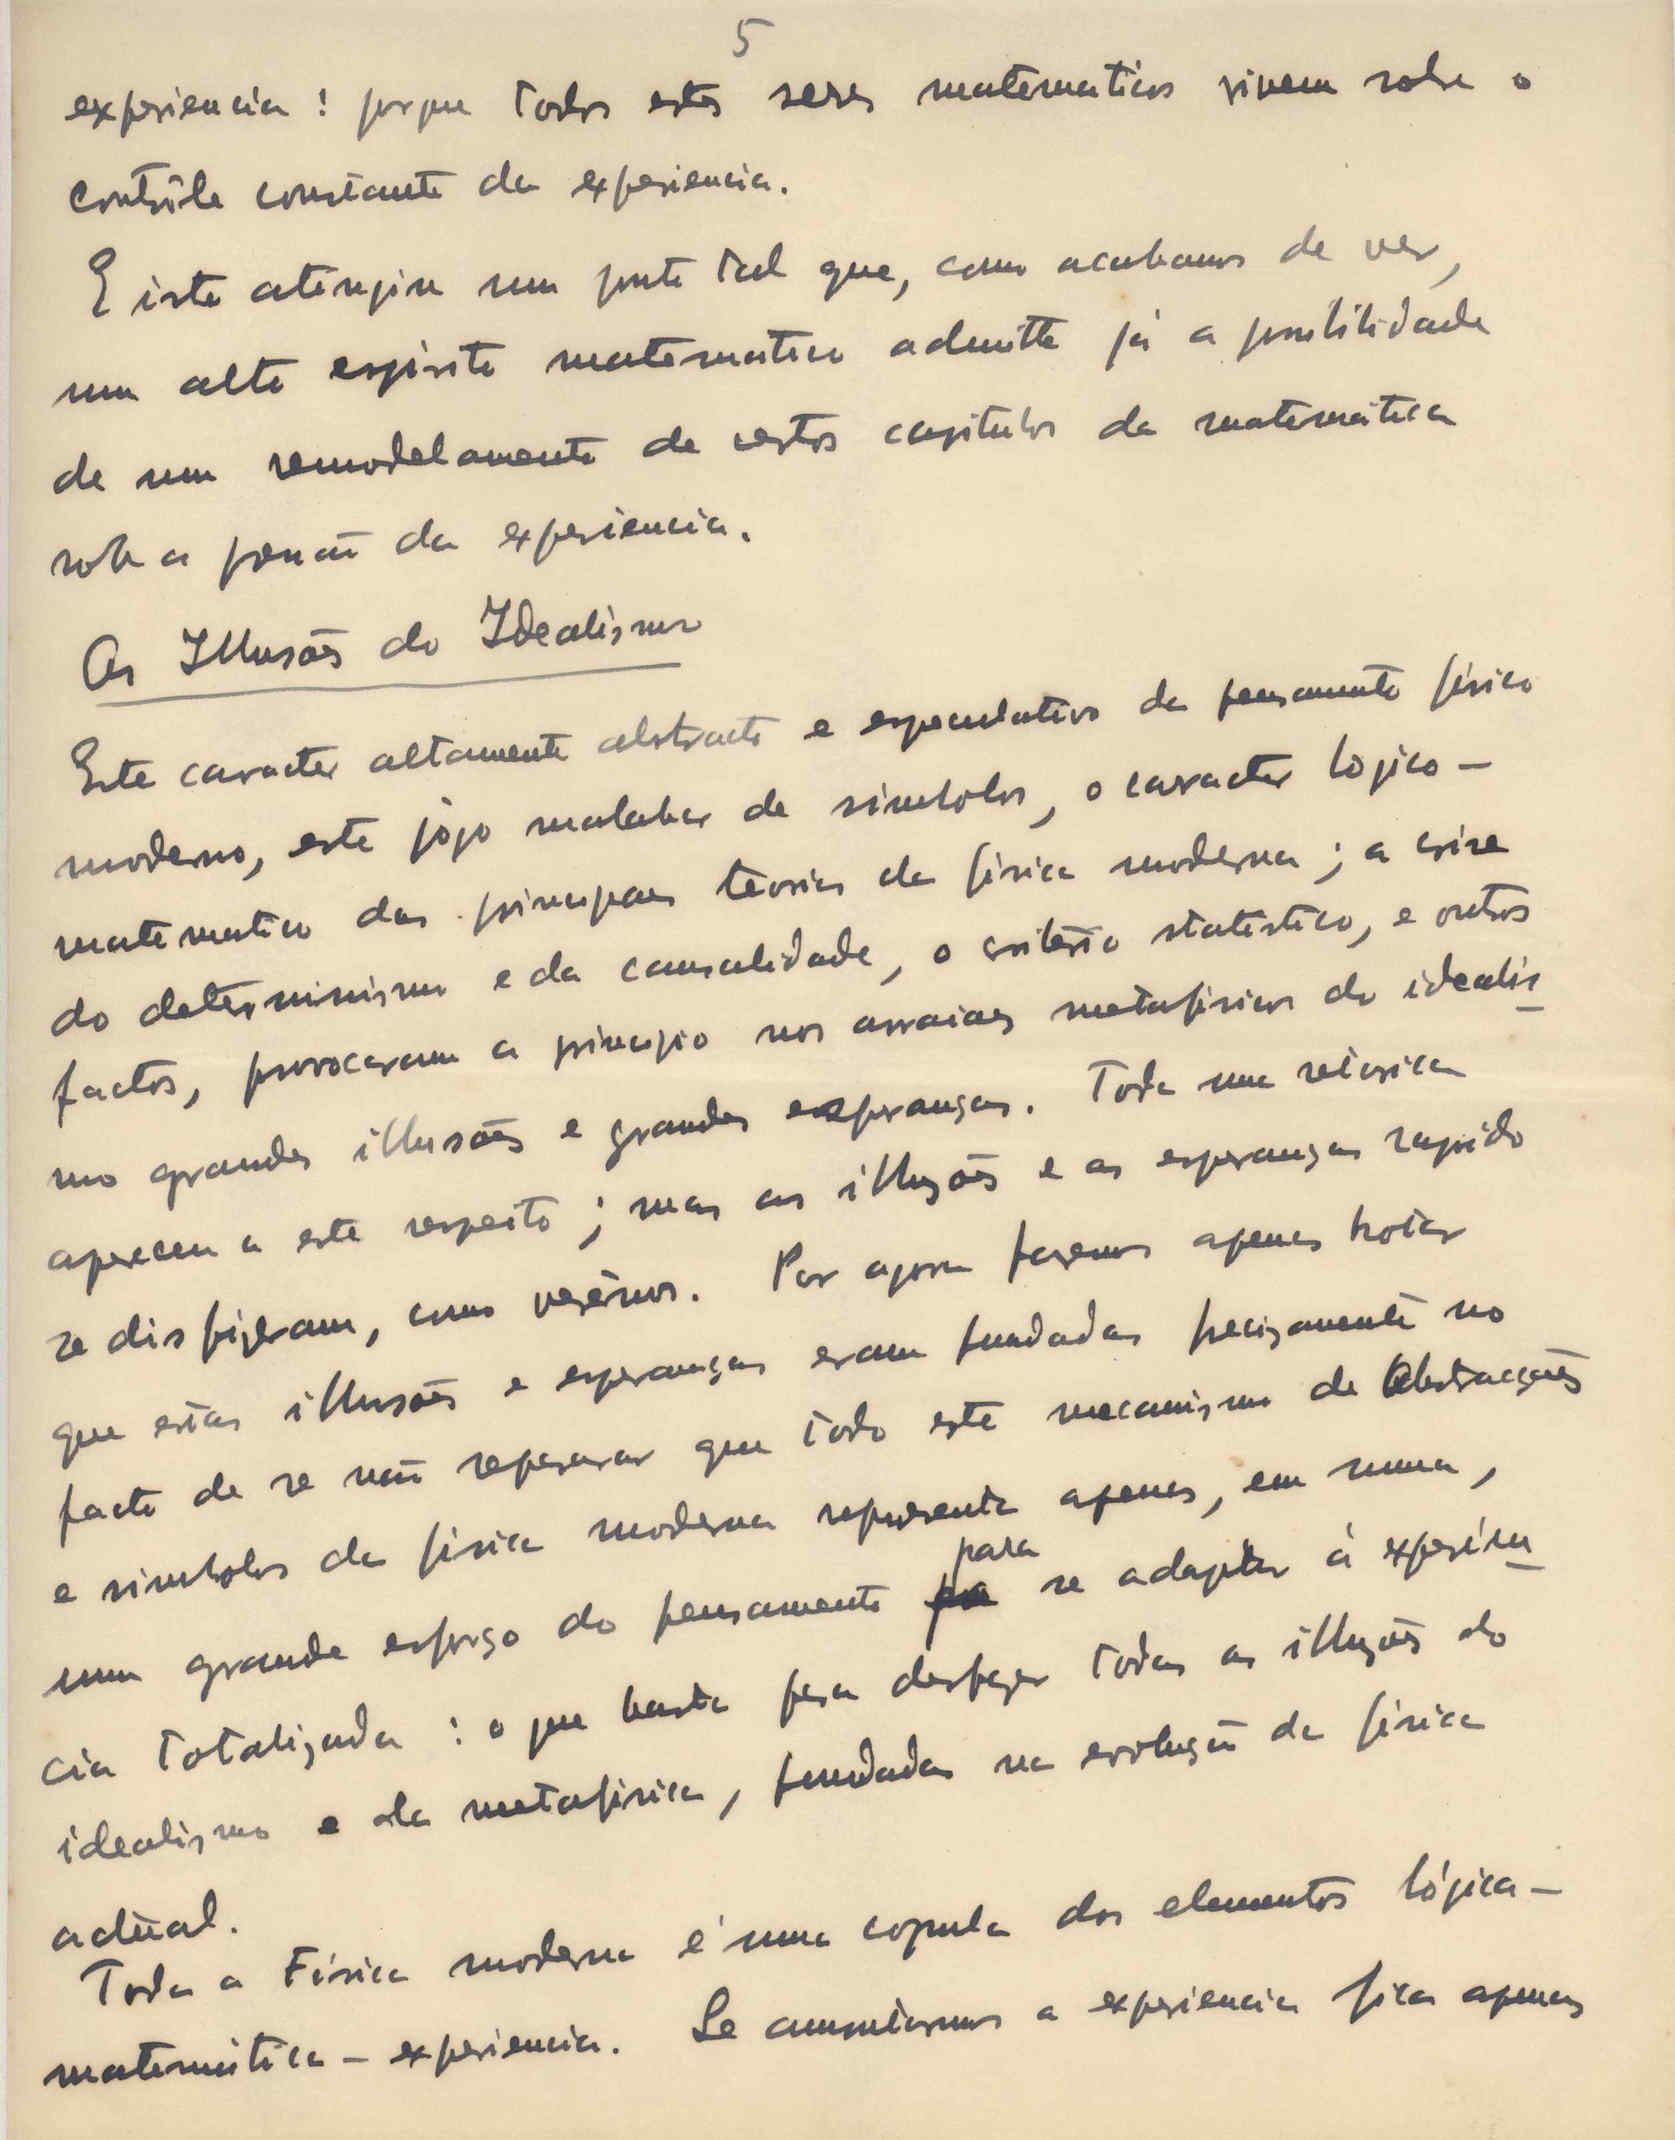 5
experiencia: porque todos estes seres matematicos vivem sobre o
contrôle constante da experiencia.
E isto atingiu um ponto tal que, como acabamos de ver,
um alto espirito matematico admitte já a possibilidade
de um remodelamento de certos capitulos da matemática
sob a pressão da experiencia.
As Illusões do Idealismo
Este caracter altamente abstracto e especulativo do pensamento fisico
moderno, este jogo malabar de simbolos, o caracter lógico-
matematico das principaes teorias da fisica moderna; a crise
do determinismo e da causalidade, o critério statistico, e outros
factos, provocaram a principio nos arraiaes metafisicos do idealis
mo grandes illusões e grandes esperanças. Toda uma retorica
apareceu a este respeito; mas as illusões e as esperanças rapido
se disfizeram, como verêmos. Por agora faremos apenas notar
que estas illusões e esperanças eram fundadas precisamente no
facto de se não reparar que todo este mecanismo de Abstracções
e simbolos da fisica moderna representa apenas, em suma,
um grande esforço do pensamento para se adaptar à experien
cia totalizada: o que basta para desfazer todas as illusões do
idealismo e da metafisica, fundadas na evolução da fisica
actual.
Toda a Fisica moderna é uma copula dos elementos lógica-
matemática - experiencia. Se a experiencia fica apenas